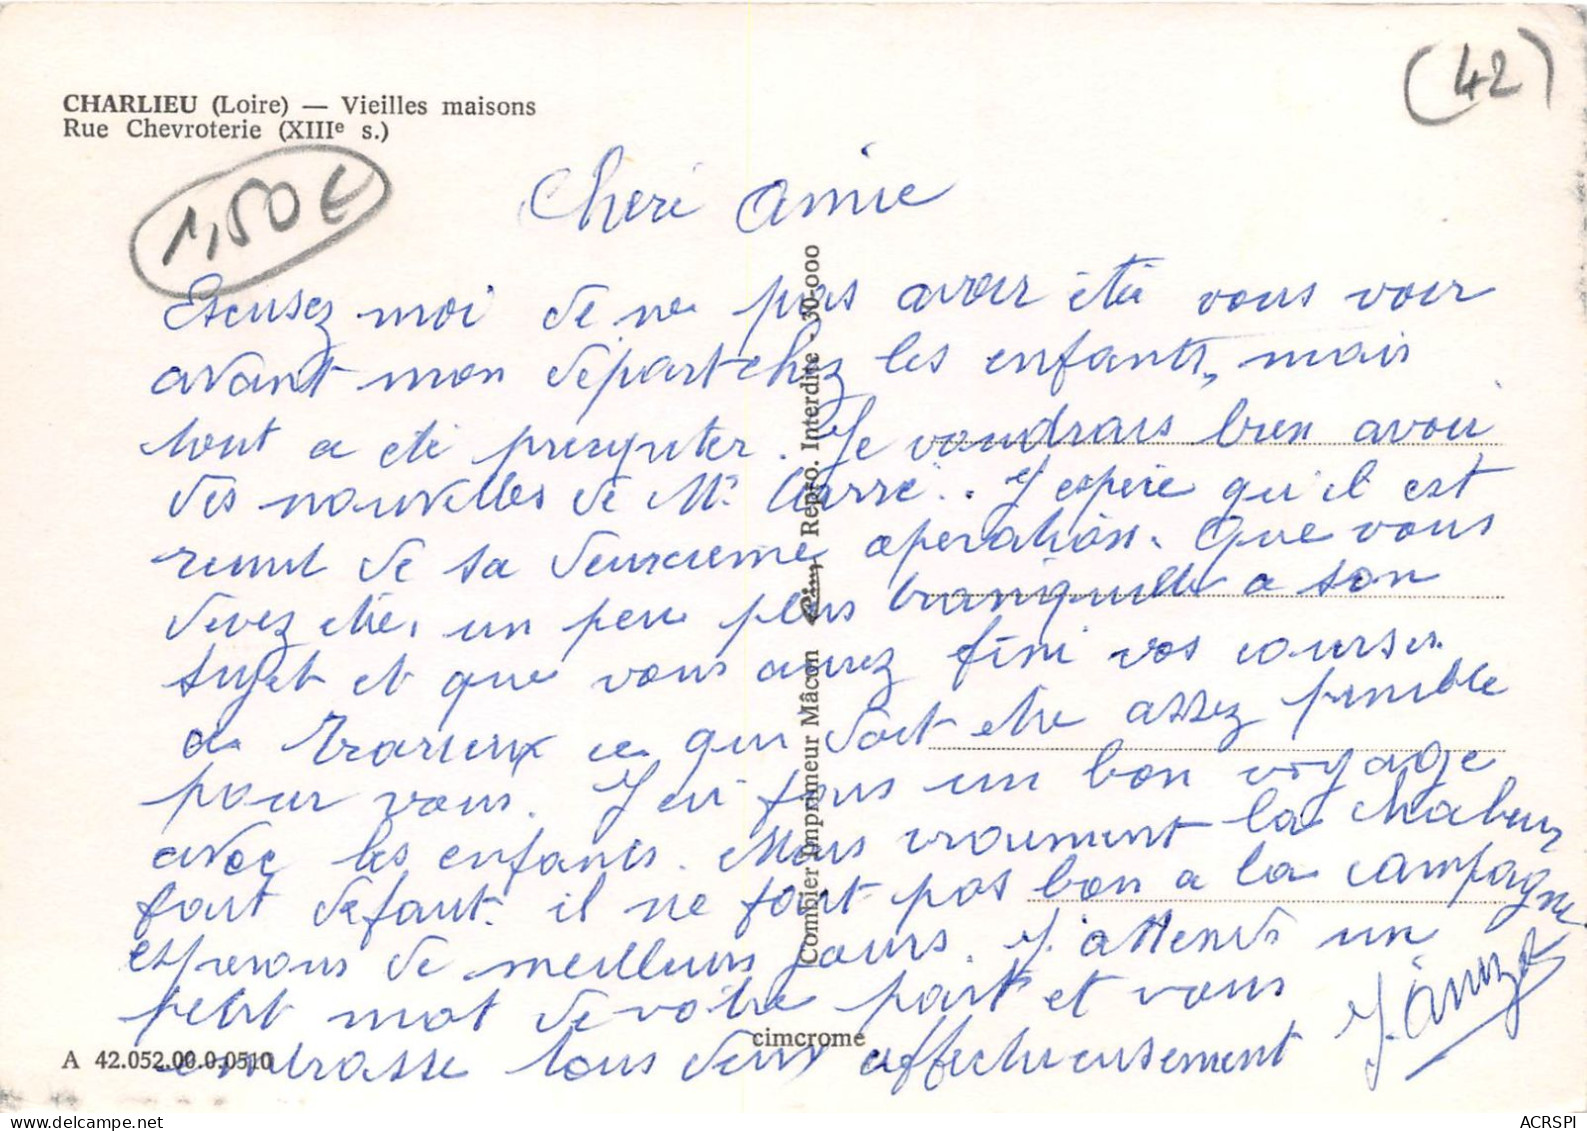 (42)
CHARLIEU (Loire) — Vieilles maisons
Rue Chevroterie (XIIIe s.)
1,50€
Cheri amie
Escusez moi de ne pas avoir été vous voir
avant mon départ chez les enfants, mais
tout a été presipiter. Je voudrais bien avoir
des nouvelles de Mr Carré.. J'espere qu'il est
remit de sa deuxieme operation. Que vous
devez étre, un peu plus tranquille a son
sujet et que vous aurez fini vos courses
a ce qui doit etre assez penible
pour vous. J'ai fais un bon voyage
avec les enfants. Mais vraiment la chaleur
fait defaut. il ne fait pas bon a la campagne
esperons de meilleurs jours. J'attends un
petit mot de votre part et vous
embrasse tous deux affectueusement
Combier Imprimeur Mâcon Repro. Interdite - 30-000
cimcrome
A 42.052.00.0.0510
ACRSPI